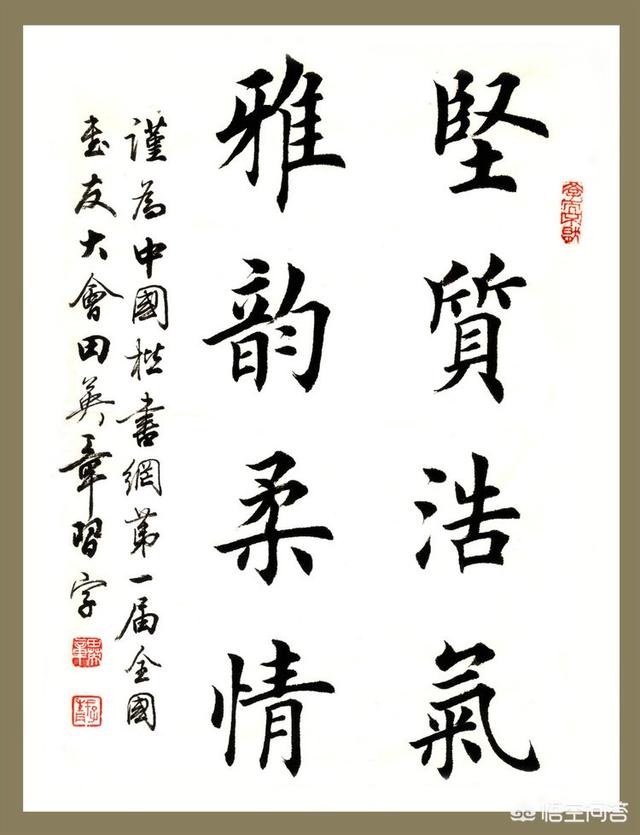 堅質浩氣
雅韵柔情
謹為中國楷書網第一届全國
書友大會田英章習字
悟空问答